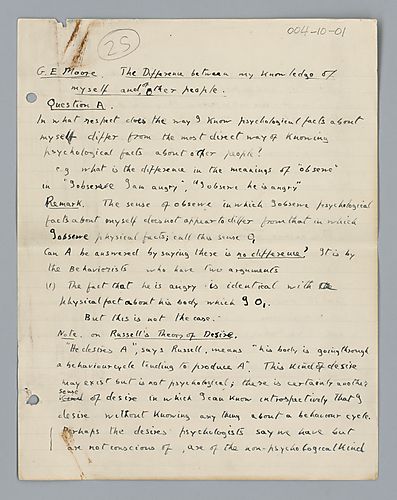 004-10-01
25
G. E. Moore. The Difference between my Knowledge of
myself and of other people.
Question A.
In what respect does the way I know psychological facts about
myself differ from the most direct way of knowing
psychological facts about other people?
e.g. what is the difference in the meanings of "observe"
in "I observe I am angry", "I observe he is angry"
Remark. The sense of observe in which I observe psychological
facts about myself does not appear to differ from that in which
I observe physical facts; call this sense O1
Can A be answered by saying there is no difference? It is by
the Behaviorists who have two arguments
(1) The fact that he is angry is identical with the
physical fact about his body which I O1.
But this is not the case.
Note. on Russell's Theory of Desire.
"He desires A", says Russell, means "his body is going through
a behaviour cycle leading to produce A". This kind of desire
may exist but is not psychological; there is certainly another
sense
of desire in which I can know introspectively that I
desire without knowing anything about a behaviour cycle.
Perhaps the desires psychologists say we have but
are not conscious of, are of the non-psychological kind